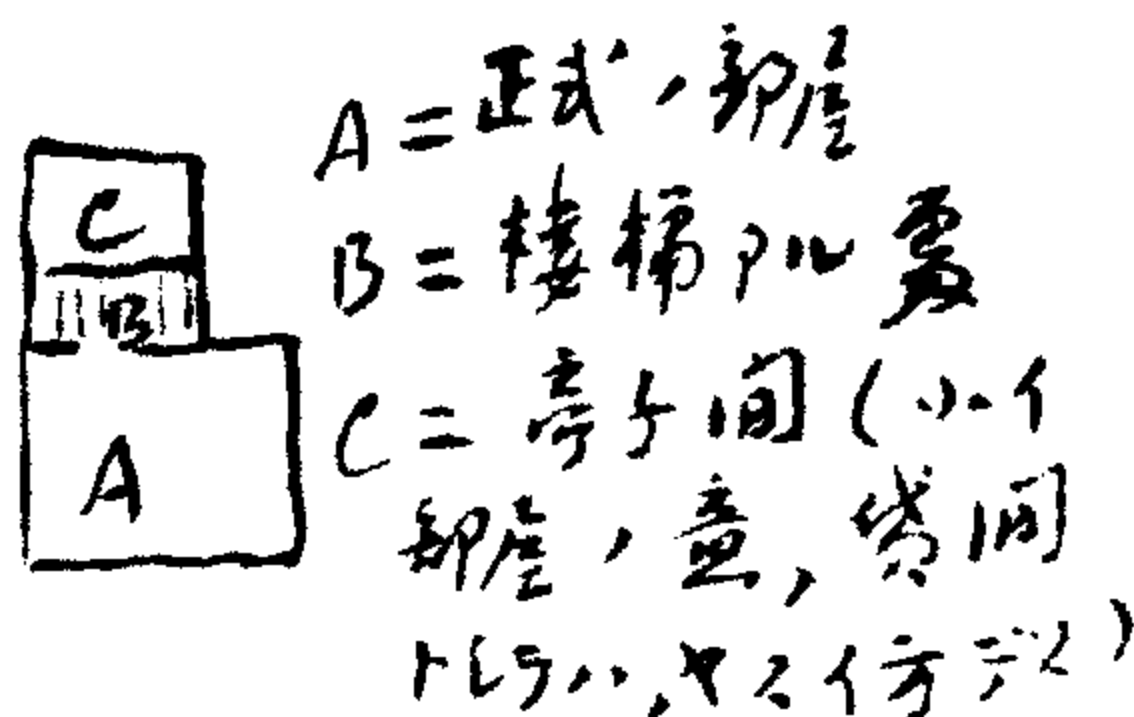 C
B
A
A=正式ノ部屋
B=樓梯アル處
C=亭子間(小イ
部屋ノ意,貸間
トシテハ,ヤスイ方デス)